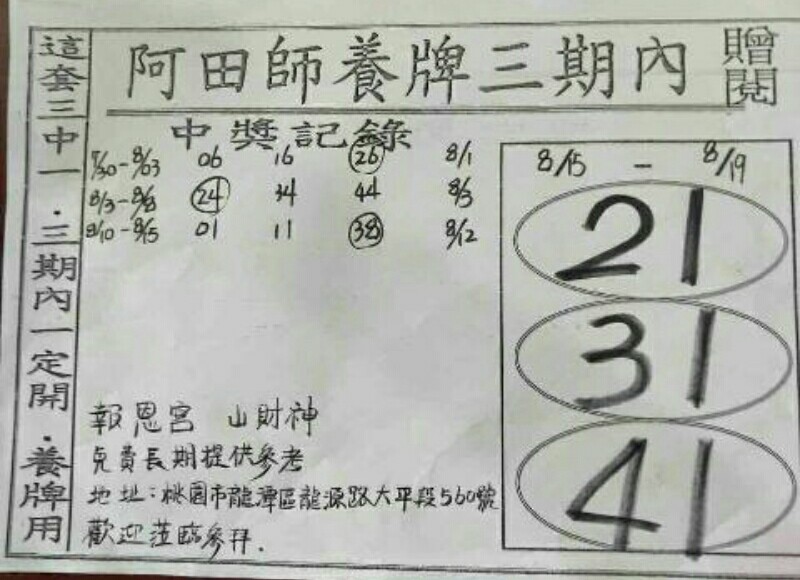 阿田師養牌三期內
贈閱
這套三中一．三期內一定開．養牌用
中獎記錄
7/30-8/03 06 16 26 8/1
8/3-8/8 24 34 44 8/3
8/10-8/15 01 11 38 8/12
8/15 - 8/19
21
31
41
報恩宮 山財神
免費長期提供參考
地址：桃園市龍潭區龍源路大平段560號
歡迎蒞臨參拜.